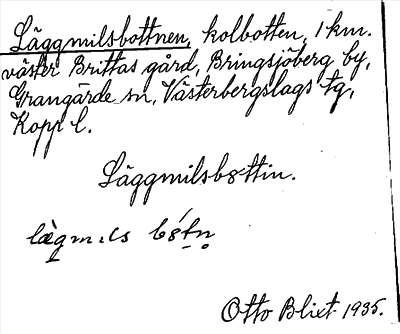 Läggmilsbottnen, kolbotten, 1 km.
väster Brittas gård, Bringsjöberg by,
Grangärde sn, Västerbergslags tg,
Kopp l.
Läggmilsb8ttin.
Otto Blixt 1935.